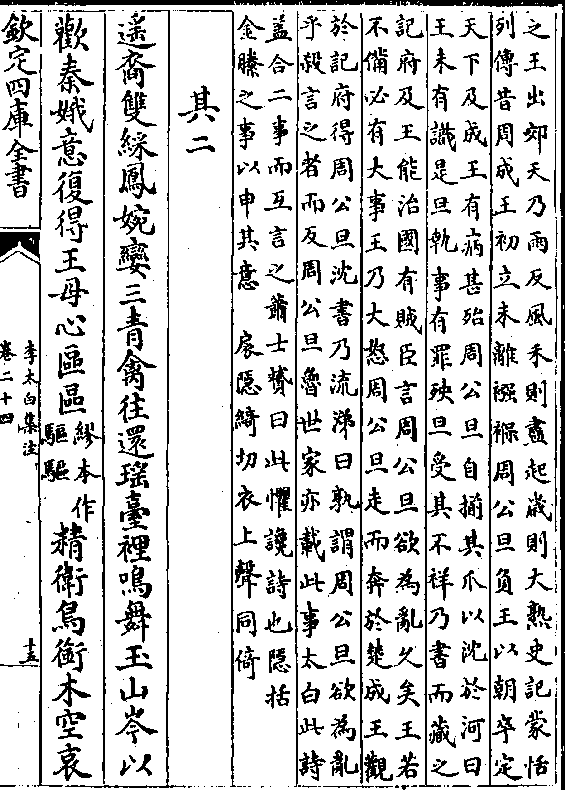 之王出郊天乃雨反風禾則盡起歲則大熟史記蒙恬
列傳昔周成王初立未離襁褓周公旦負王以朝卒定
天下及成王有病甚殆周公旦自揃其爪以沈於河曰
王未有識是旦執事有罪殃旦受其不祥乃書而藏之
記府及王能治國有賊臣言周公旦欲為亂久矣王若
不備必有大事王乃大怒周公旦走而奔於楚成王觀
於記府得周公旦沈書乃流涕曰孰謂周公旦欲為亂
乎殺言之者而反周公旦魯世家亦載此事太白此詩
蓋合二事而互言之蕭士贇曰此懼讒詩也隱括
金縢之事以申其意 扆隱綺切衣上聲同倚
其二
遙裔雙綵鳳婉孌三青禽往還瑤臺裡鳴舞玉山岑以
歡秦娥意復得王母心區區繆本作驅驅精衛鳥銜木空哀
欽定四庫全書
李太白集注
卷二十四
十五